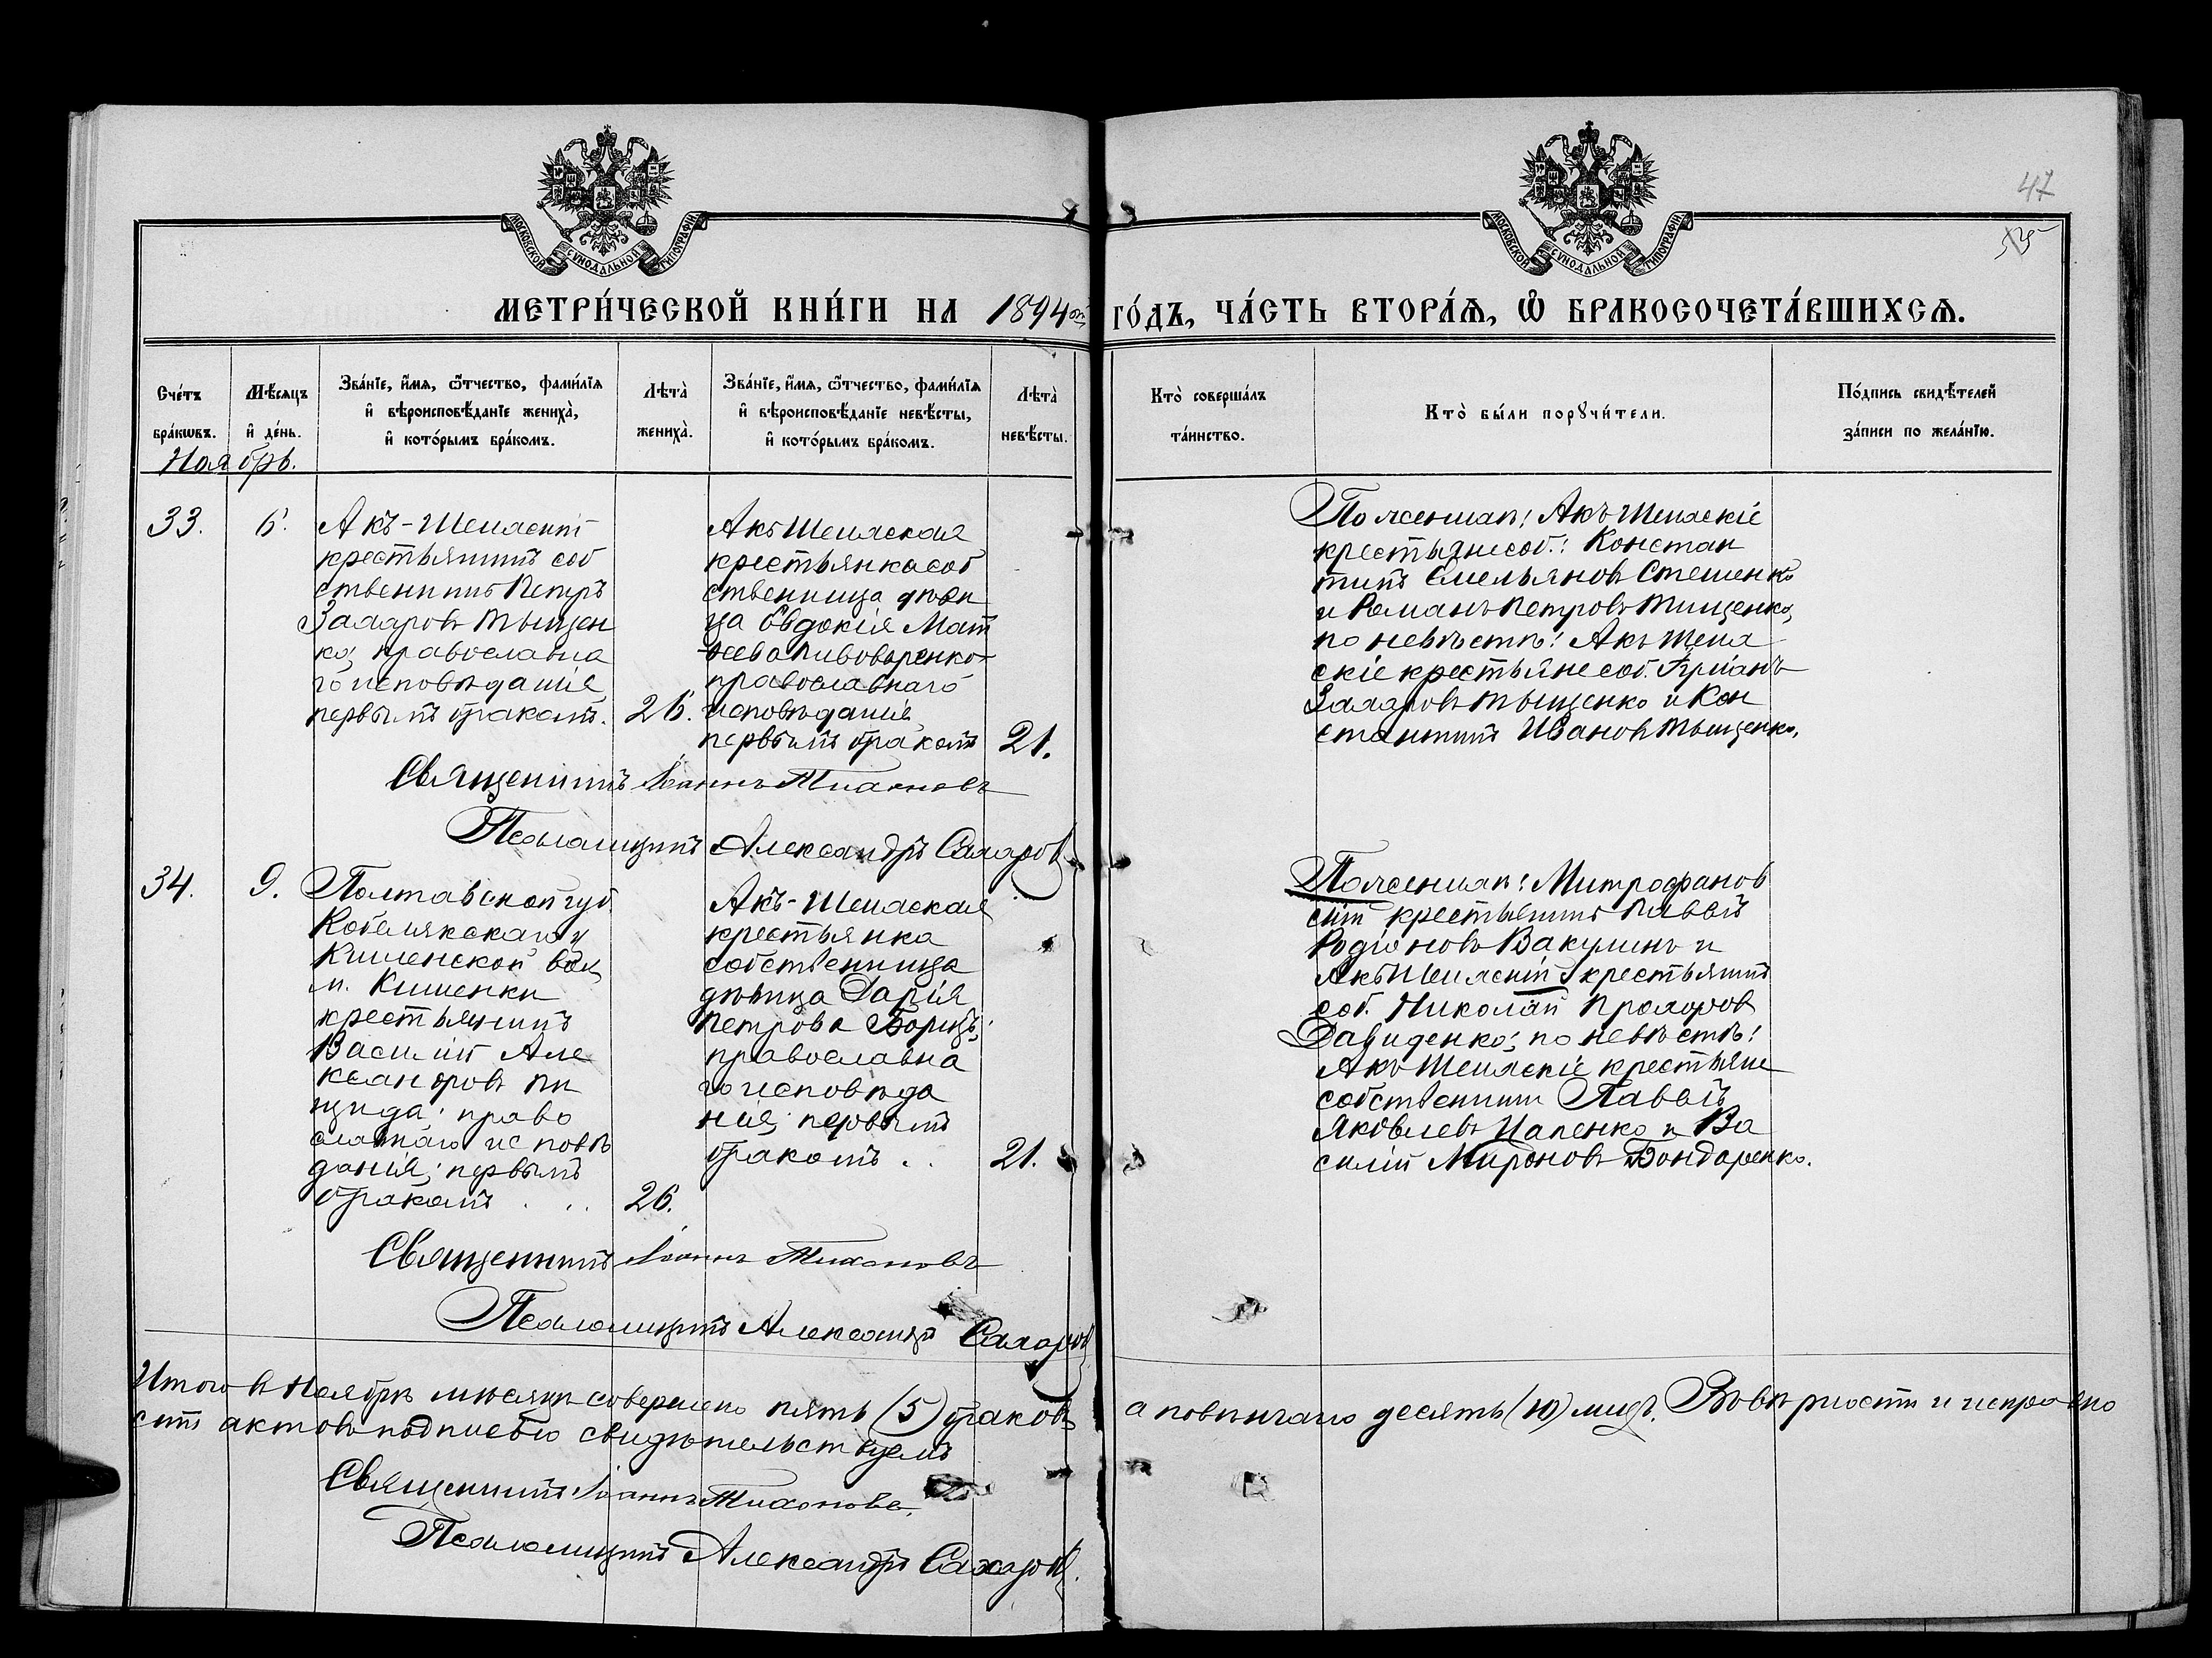 47
МОСКОВСКОЙ СѴНОДАЛЬНОЙ ТИПОГРАФІИ
МОСКОВСКОЙ СѴНОДАЛЬНОЙ ТИПОГРАФІИ
МЕТРИ́ЧЕСКОЙ КНИ́ГИ НА 1894ой ГО́ДЪ, ЧА́СТЬ ВТОРА́Ѧ, Ѽ БРАКОСОЧЕТА́ВШИХСѦ.
Сче́тъ бра́кѡвъ.
Мѣ́сѧцъ и҆ де́нь.
Зва́нїе, и҆́мѧ, ѻ҆́тчество, фами́лїѧ
и҆ вѣроисповѣ́данїе жениха̀,
и҆ кото́рымъ бра́комъ.
Лѣта̀ жениха̀.
Зва́нїе, и҆́мѧ, ѻ҆́тчество, фами́лїѧ
и҆ вѣроисповѣ́данїе невѣ́сты,
и҆ кото́рымъ бра́комъ.
Лѣта̀ невѣ́сты.
Кто̀ соверша́лъ та́инство.
Кто̀ бы́ли порꙋчи́тели.
По́дпись свидѣ́телей
за́писи по жела́нїю.
Ноябрь.
33.
6.
Акъ-Шеихскій
крестьянинъ соб
ственникъ Петръ
Захаровъ Тыщен
ко; православна
го исповѣданія,
первымъ бракомъ.
26.
Акъ Шеихская
крестьянка соб
ственница дѣви
ца Евдокія Мат
ѳеева Пивоваренко
православнаго
исповѣданія,
первымъ бракомъ
21.
По женихѣ: Акъ Шеихскіе
крестьяне соб.: Констан
тинъ Емельяновъ Стешенко
и Романъ Петровъ Тищенко,
по невѣстѣ: Акъ Шеих
скіе крестьяне соб.
Захаровъ Тыщенко и Кон
стантинъ Ивановъ Тыщенко.
Священникъ Іоаннъ Тихоновъ
Псаломщикъ Александръ Сахаровъ
34.
9.
Полтавской губ.
Кобелякскаго у
Кишенской вол.
м. Кишенки
крестьянинъ
Василій Але
ксандровъ Пи
щида; право
славнаго исповѣ
данія; первымъ
бракомъ . . .
26.
Акъ-Шеихская
крестьянка
собственница
дѣвица Дарія
Петрова Борщъ;
православна
го исповѣда
нія; первымъ
бракомъ . .
21.
По женихѣ: Митрофанов
скій крестьянинъ Павелъ
Родіоновъ Вакулинъ и
Акъ Шеихскій крестьянинъ
соб. Николай Прохоровъ
Давиденко; по невѣстѣ:
Акъ Шеихскіе крестьяне
собственники Павелъ
Яковлевъ Цапенко и Ва
силій Мироновъ Бондаренко.
Священникъ Іоаннъ Тихоновъ
Псаломщикъ Александръ Сахаровъ
Итого въ Ноябрѣ мѣсяцѣ совершено пять (5) браковъ, а повѣнчано десять (10) лицъ. Въ вѣрности и исправно
сти актовъ подписью свидѣтельствуемъ
Священникъ Іоаннъ Тихоновъ.
Псаломщикъ Александръ Сахаровъ.